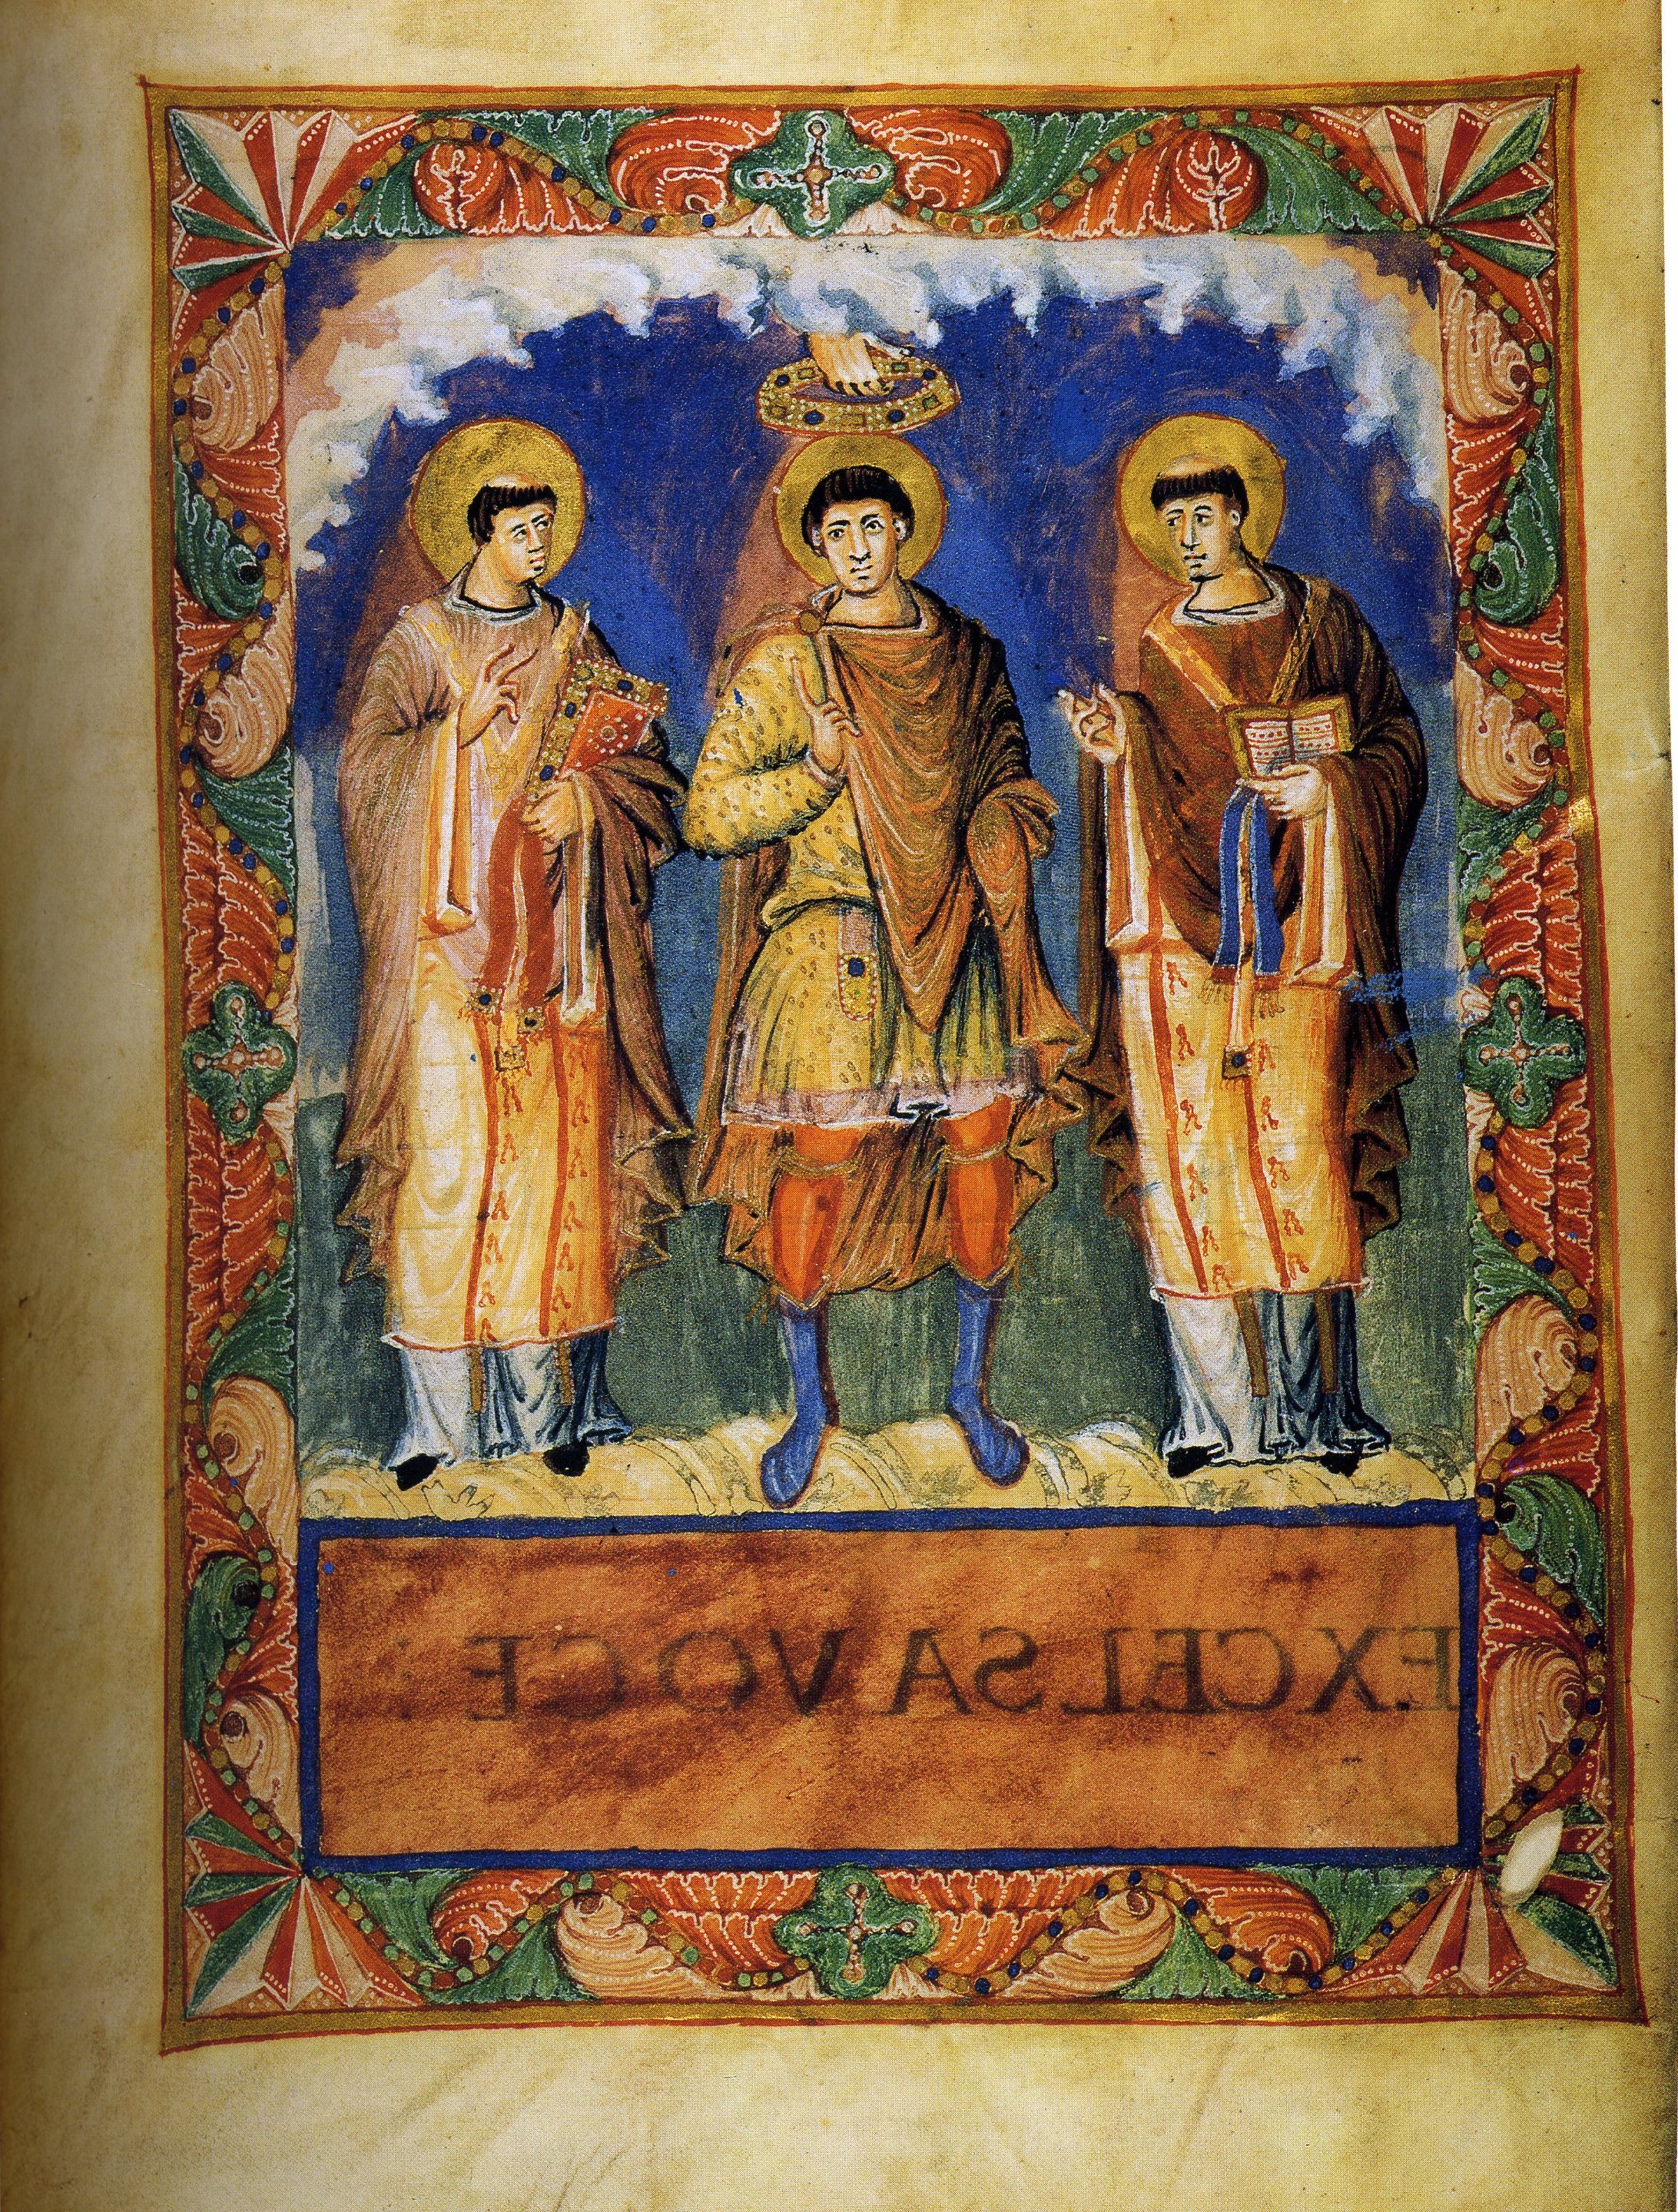 EXCELSA VOCE